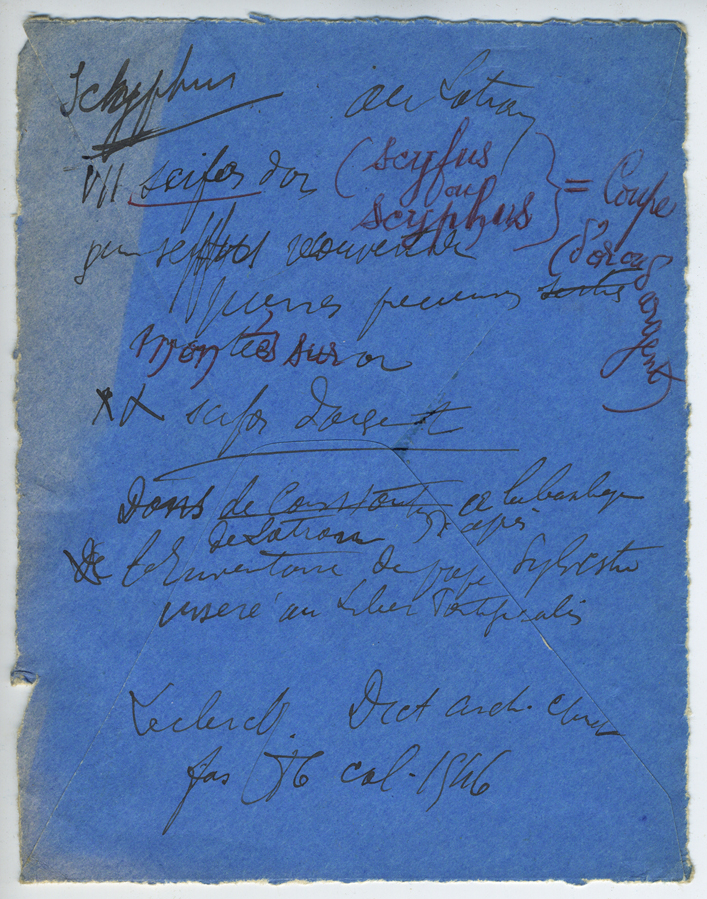 Schyphus au Latran
VII scifos d'or (scyfus
ou
scyphus } = Coupe
(d'or ou d'argent)
qui recouverts
pierres precieuses sertis
montées sur or
XX scifos d'argent
Dons de Constantin a la basilique
de Latran d'après
De l'Inventaire du pape Sylvestre
inséré au Liber Pontificalis
Leclercq. Dict arch. chret
fas col. 1546